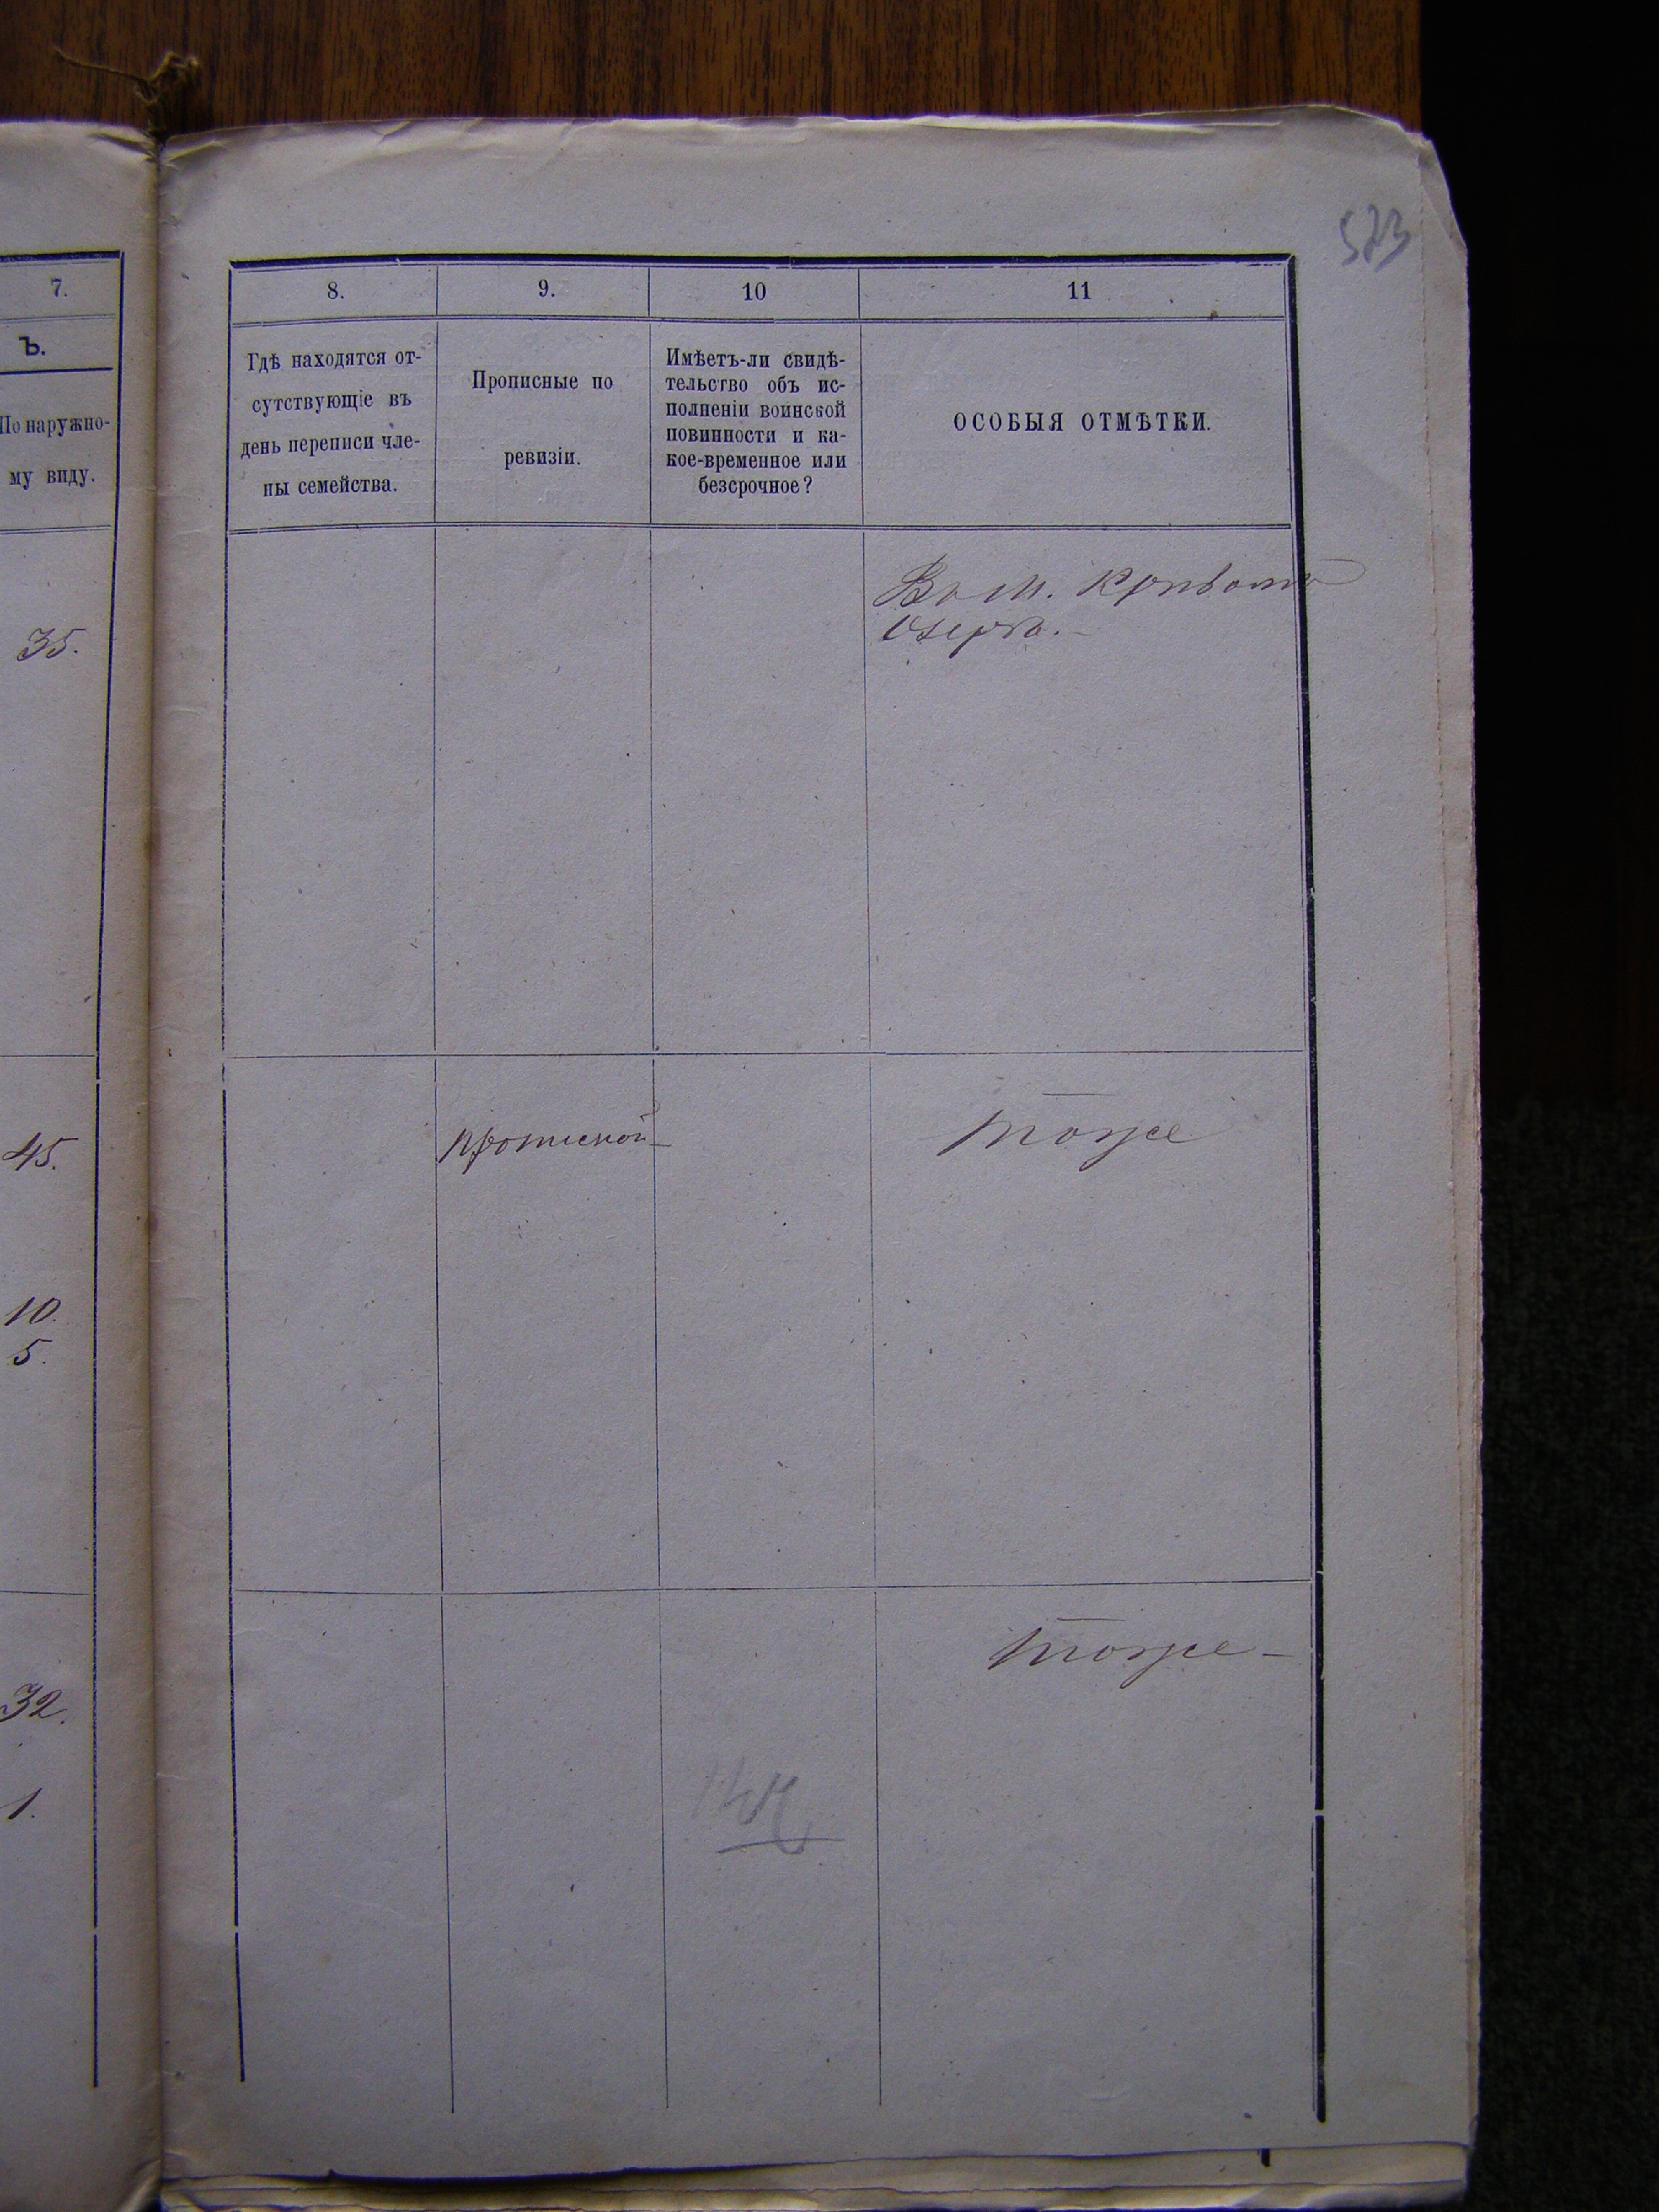 573
7.
Ъ.
По наружно-
му виду.
35.
45.
10.
5.
32.
1.
8.
9.
10
11
Гдѣ находятся от-
сутствующіе въ
день переписи чле-
ны семейства.
Прописные по
ревизіи.
Имѣетъ-ли свидѣ-
тельство объ ис-
полненіи воинской
повинности и ка-
кое-временное или
безсрочное?
ОСОБЫЯ ОТМѢТКИ.
Въ М. Кривомъ
Озерѣ.
прописной
тоже
тоже